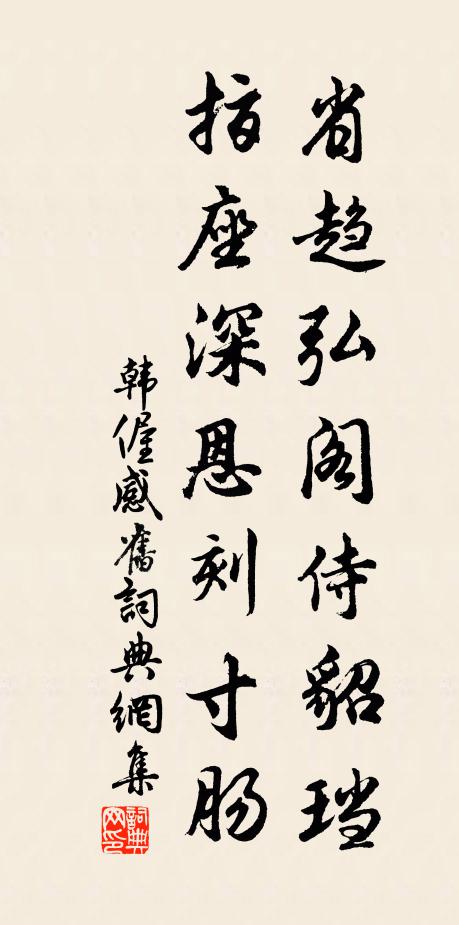 省趋弘阁侍貂珰
指座深恩刻寸肠
韩偓感舊詞典網集
詞典网印